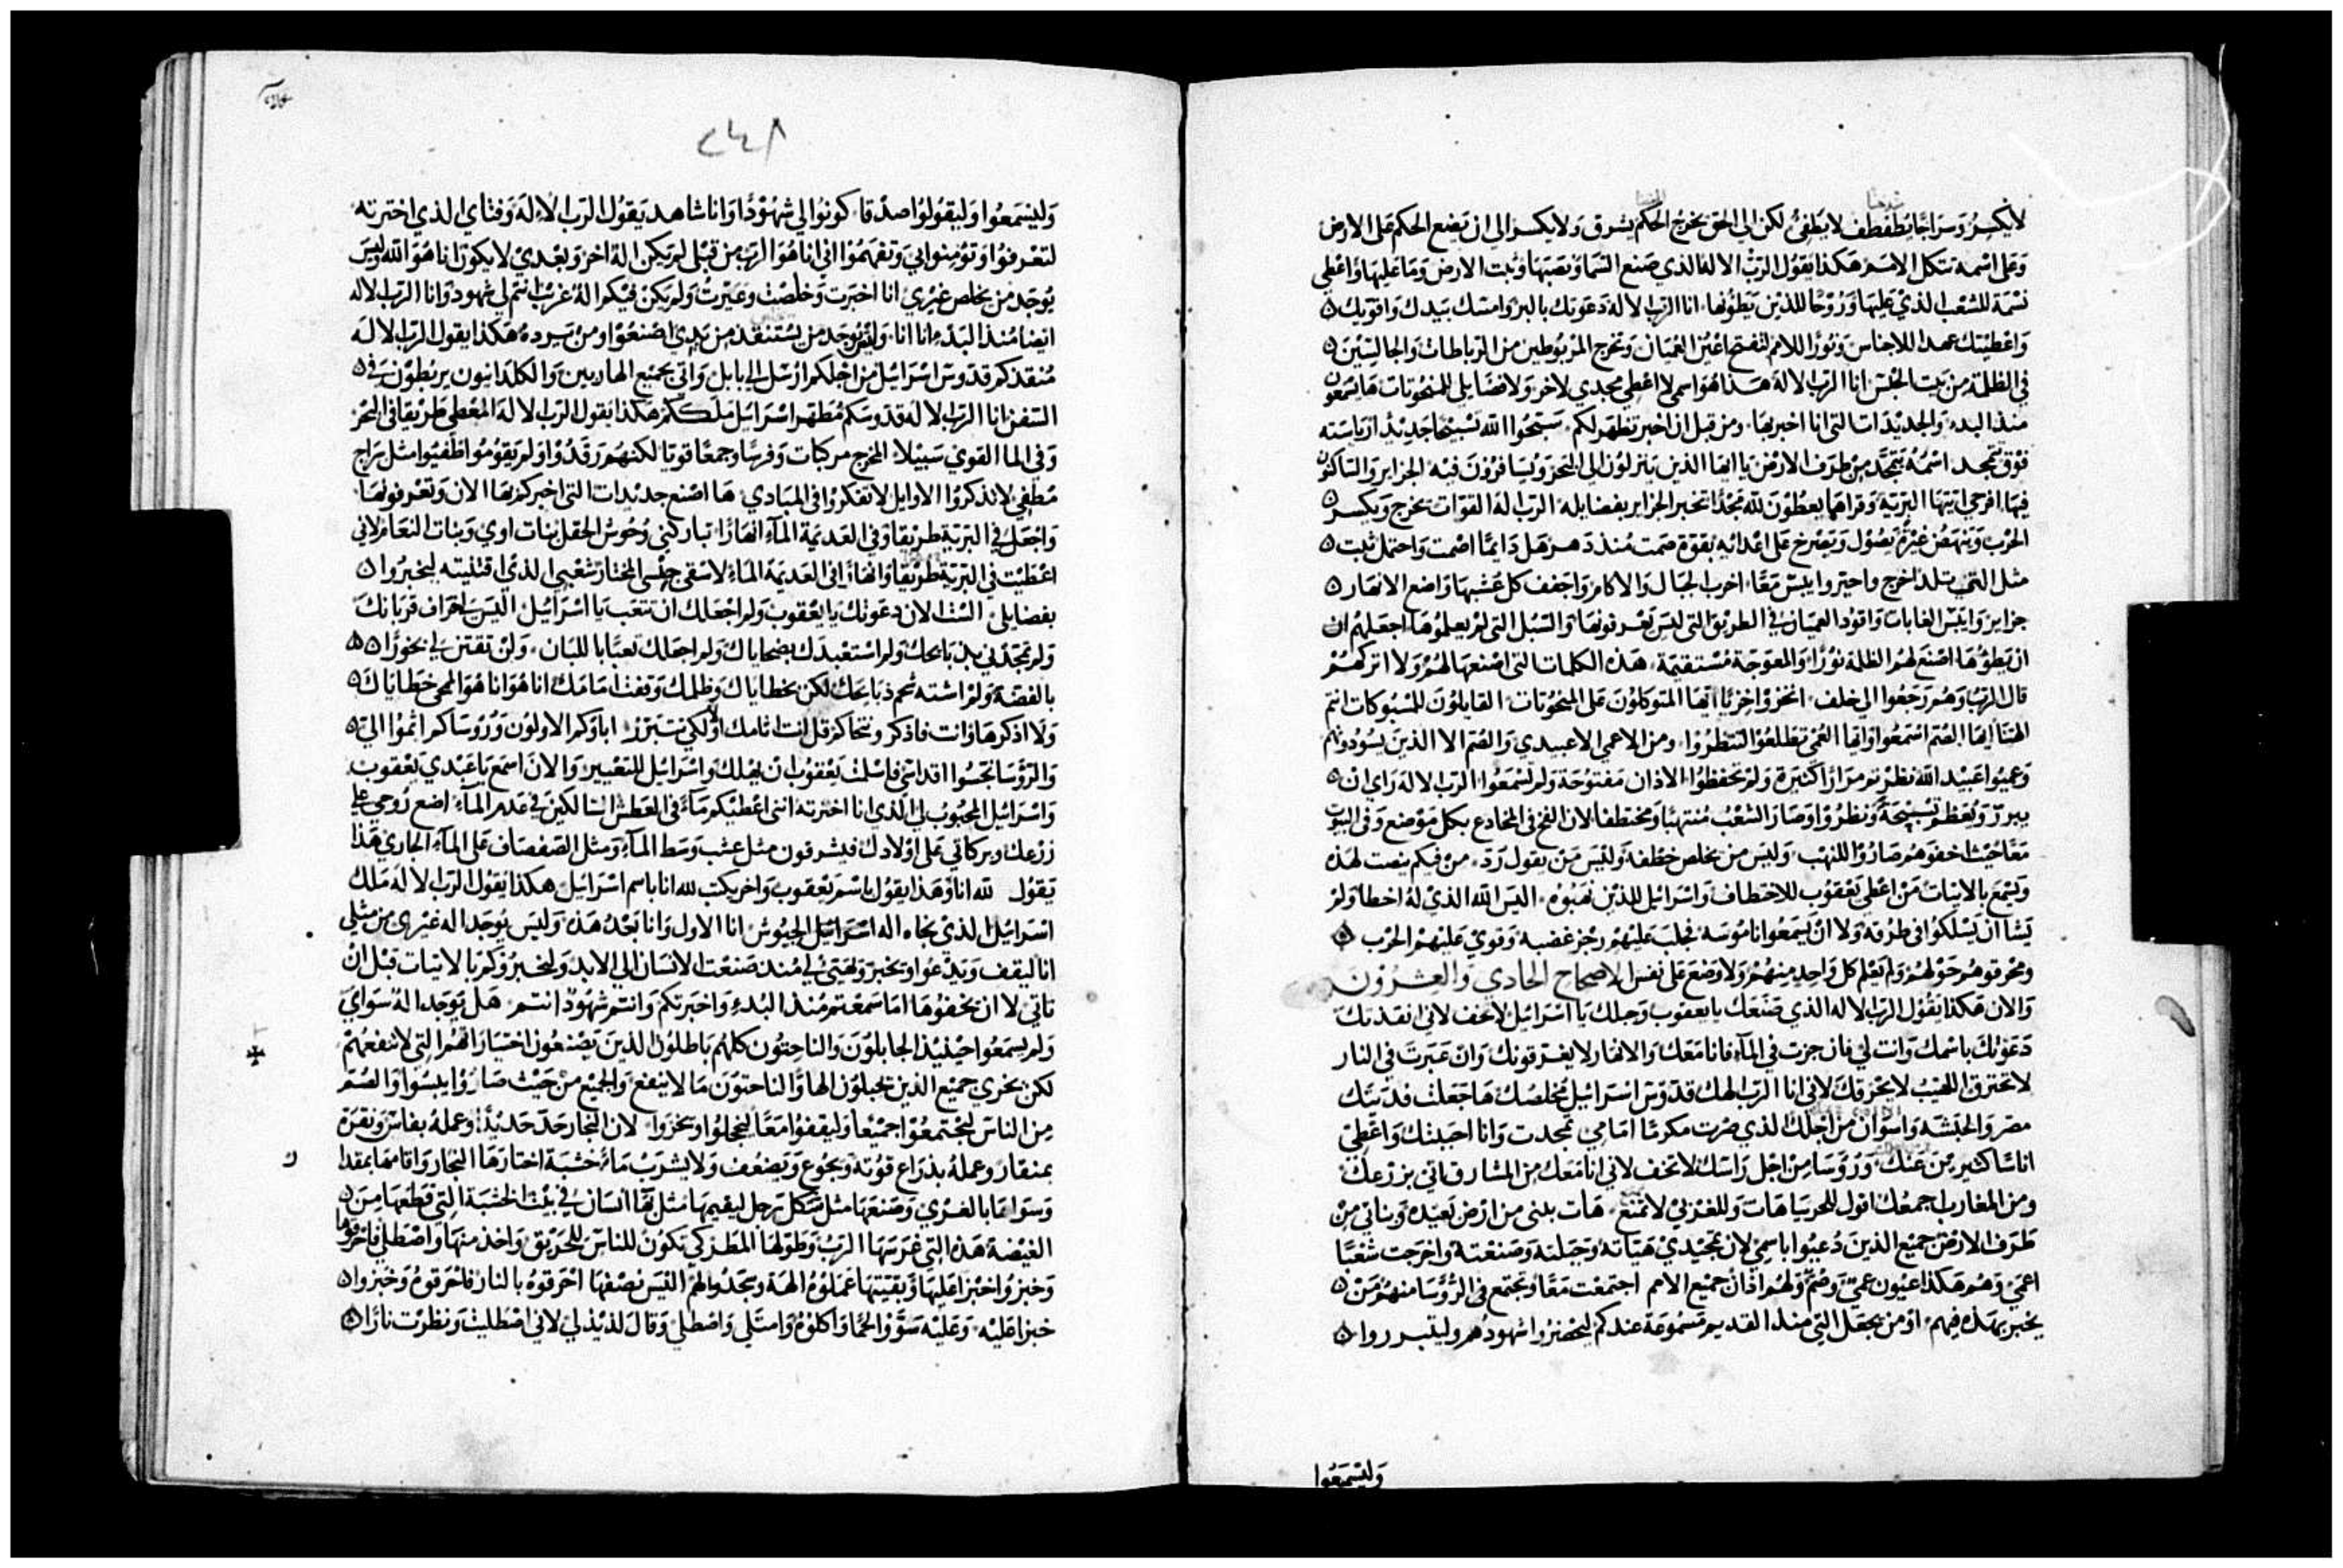 لا يكسر وسراجا يطفطف لا يطفئ لكن الي الحق يخرج الحكم يشرق ولا يكسر الى ان يضع الحكم على الارض
وعلى اسمه تتكل الامم هكذا يقول الرب الاله الذي صنع السما ونصبها وثبت الارض وما عليها واعطي
نسمة للشعب الذي عليها وروحا للذين يطوُنها انا الرب الاله دعوتك بالبر وامسك بيدك واقويك
واعطيتك عهدا للاجناس ونورا للامم لتفتح اعين العميان وتخرج المربوطين من الرباطات والجالسين
في الظلمة من بيت الحبس انا الرب الاله هذا هو اسمي لا اعطي مجدي لاخر ولا فضايلي للمنحوتات
منذ البدء والجديدات التي انا اخبر بها ومن قبل ان اخبر تظهر لكم سبحوا الله تسبيحا جديدا رياسته
فوق تمجد اسمه يتمجد من طرف الارض يا ايها الذين ينزلون الى البحر ويسافرون فيه الجزاير والساكنون
فيها افرحي ايتها البرية وقراها يعطون لله مجدا تخبر الجزاير بفضايله الرب اله القوات يخرج ويكسر
الحرب وينهض غيرة يصول ويصرخ على اعدائه بقوة صمت منذ دهر هل دايما اصمت واحتمل ثبت
مثل التي تلد اخرج واحير وايبس معا اخرب الجبال والاكام واجفف كل عشبها واضع الانهار
جزاير وايبس الغابات واقود العميان في الطريق التي ليس يعرفونها والسبل التي لم يعلموها اجعلهم ان
ان يطوها اصنع لهم الظلمة نورا والمعوجة مستقيمة هذه الكلمات التي اصنعها لهم ولا اتركهم
قال الرب وهم رجعوا الى خلف اخزوا خزيا ايها المتوكلون على المنحوتات القايلون للمسبوكات انتم
الهتنا ايها الصم اسمعوا وايها العمي تطلعوا لتنظروا ومن الاعمي الا عبيدي والصم الا الذين يسودونهم
وعميوا عبيد الله نظرتم مرارا كثيرة ولم تحفظوا الاذان مفتوحة ولم تسمعوا الرب الاله راي ان
يبرر ويعظم تسبيحة ونظروا وصار الشعب منتهبا ومختطفا لان الفخ في المخادع بكل موضع وفي البيوت
معا حيث اخفوهم صاروا للنهب وليس من يخلص خطفة وليس من يقول رد من فيكم ينصت لهذه
ويسمع بالاتيات من اعطى يعقوب للاختطاف واسرائيل للذين نهبوه اليس الله الذي له اخطا ولم
يشا ان يسلكوا في طرقه ولا ان يسمعوا ناموسه فجلب عليهم رجز غضبه وقوي عليهم الحرب
ومحرقوهم حولهم ولم يعلم كل واحد منهم ولا وضع على نفس الاصحاح الحادي والعشرون
والان هكذا يقول الرب الاله الذي صنعك يا يعقوب وجبلك يا اسرائيل لا تخف لاني انقذتك
دعوتك باسمك وانت لي فان جزت في الماء فانا معك والانهار لا يغرقونك وان عبرت في النار
لا تحترق اللهيب لا يحرقك لاني انا الرب الهك قدوس اسرائيل مخلصك ها جعلت فديتك
مصر والحبشة واسوان من اجلك الذي صرت مكرما امامي تمجدت وانا احببتك واعطي
اناسا كثير من عنك وروسا من اجل راسك لا تخف لاني انا معك من المشارق اتي بزرعك
ومن المغارب اجمعك اقول للجربيا هات وللغربي لا تمنع هات بنى من ارض بعيدة وبناتي من
طرف الارض جميع الذين دُعيوا باسمي لان تمجيدي هياته وجبلته وصنعته واخرجت شعبا
اعمي وهم هكذا عيون عمي وصم ولهم اذان جميع الامم اجتمعت معا وتجتمع في الروسا منهم من
يخبر بهذه فيهم او من يجعل التي منذ القديم مسموعة عندكم ليحضروا شهودهم وليتبرروا
وليسمعوا
٢٤٨
وليسمعوا وليقولوا صدقا كونوا لي شهودا وانا شاهد يقول الرب الاله وفتاي الذي اخترته
لتعرفوا وتومنوا بي وتفهموا اني انا هو الرب من قبلي لم يكن اله اخر وبعدي لا يكون انا هو الله وليس
يوجد من يخلص غيري انا اخبرت وخلصت وعيرت ولم يكن فيكم اله غريب انتم لي شهود وانا الرب الاله
ايضا منذ البدء انا انا وليس يوجد من يستنقذ من يدي اصنعوا ومن يرده هكذا يقول الرب الاله
منقذكم قدوس اسرائيل من اجلكم ارسل الى بابل واتي بجميع الهاربين والكلدانيون يربطون في
السفن انا الرب الاله قدوسكم مُظهر اسرائيل ملككم هكذا يقول الرب الاله المعطي طريقا في البحر
وفي الما القوي سبيلا المخرج مركبات وفرسا وجمعا قويا لكنهم رقدوا ولم يقوموا اطفيوا مثل سراج
مطفي لا تذكروا الاوايل لا تفكروا في المبادي ها اصنع جديدات التي اخبركم بها الان وتعرفونها
واجعل في البرية طريقا وفي العديمة الماء انهارا تباركني وحوش الحقل بنات اوي وبنات النعام لاني
اعطيت في البرية طريقا وانهارا في العديمة الماء لاسقي جنسي المختار شعبي الذي اقتنيته ليخبروا
بفضايلي الست لان دعوتك يا يعقوب ولم اجعلك ان تتعب يا اسرائيل اليس خراف قربانك
ولم تمجدني بذبايحك ولم استعبدك بضحاياك ولم اجعلك تعبا باللبان ولن تقتن لي بخورا
بالفضة ولم اشته شحم ذبايحك لكن بخطاياك وظلمك وقفت امامك انا هو انا هو الممحي خطاياك
ولا اذكرها وانت فاذكر ونتحاكم قل انت اثامك اولا لكي تتبرر اباوكم الاولون وروساكم اثموا الي
والروسا نجسوا اقداسي فاسلمت يعقوب ان يهلك واسرائيل للتعيير والان اسمع يا عبدي يعقوب
واسرائيل المحبوب لي الذي انا اخترته انني اعطيكم ماء في العطش السالكين في عدم الماء اضع روحي على
زرعك وبركاتي على اولادك فيشرقون مثل عشب وسط الماء ومثل الصفصاف على الماء الجاري هذا
يقول لله انا وهذا يقول باسم يعقوب واخر يكتب لله انا باسم اسرائيل هكذا يقول الرب الاله ملك
اسرائيل الذي نجاه اله اسرائيل الجيوش انا الاول وانا بعد هذه وليس يوجد اله غيري من مثلي
انا ليقف ويدعوا ويخبر ويهيئ لي منذ صنعت الانسان الى الابد وليخبروكم بالاتيات قبل ان
تاتي لا ان يخفوها اما سمعتم منذ البدء واخبرتكم وانتم شهود انتم هل يوجد اله سواي
ولم يسمعوا حينيذ الجابلون والناحتون كلهم باطلون الذين يصنعون اختيارا لهم التي لا تنفعهم
لكن يخزي جميع الذين يجبلون الها والناحتون ما لا ينفع والجميع من حيث صاروا يبسوا والصم
من الناس ليجتمعوا جميعا وليقفوا معا ليخجلوا ويخزوا لان النجار حد حديدا وعمله بفاس ونقره
بمنقار وعمله بذراع قوته ويجوع ويضعف ولا يشرب ماء خشبة اختارها النجار واقامها بمقدار
وسواها بالغري وصنعها مثل شكل رجل ليقيمها مثل بها انسان في بيت الخشبة التي قطعها من
الغيضة هذه التي غرسها الرب وطولها المطر كي تكون للناس للحريق واخذ منها واصطلي فاحرقوها
وخبزوا خبزا عليها وبقيتها عملوه الهة وسجدوا لهم اليس نصفها احرقوه بالنار فاحرقوه وخبزوا
خبزا عليه وعليه سووا لحما واكلوه وامتلي واصطلي وقال لذيذ لي لاني اصطليت ونظرت نارا